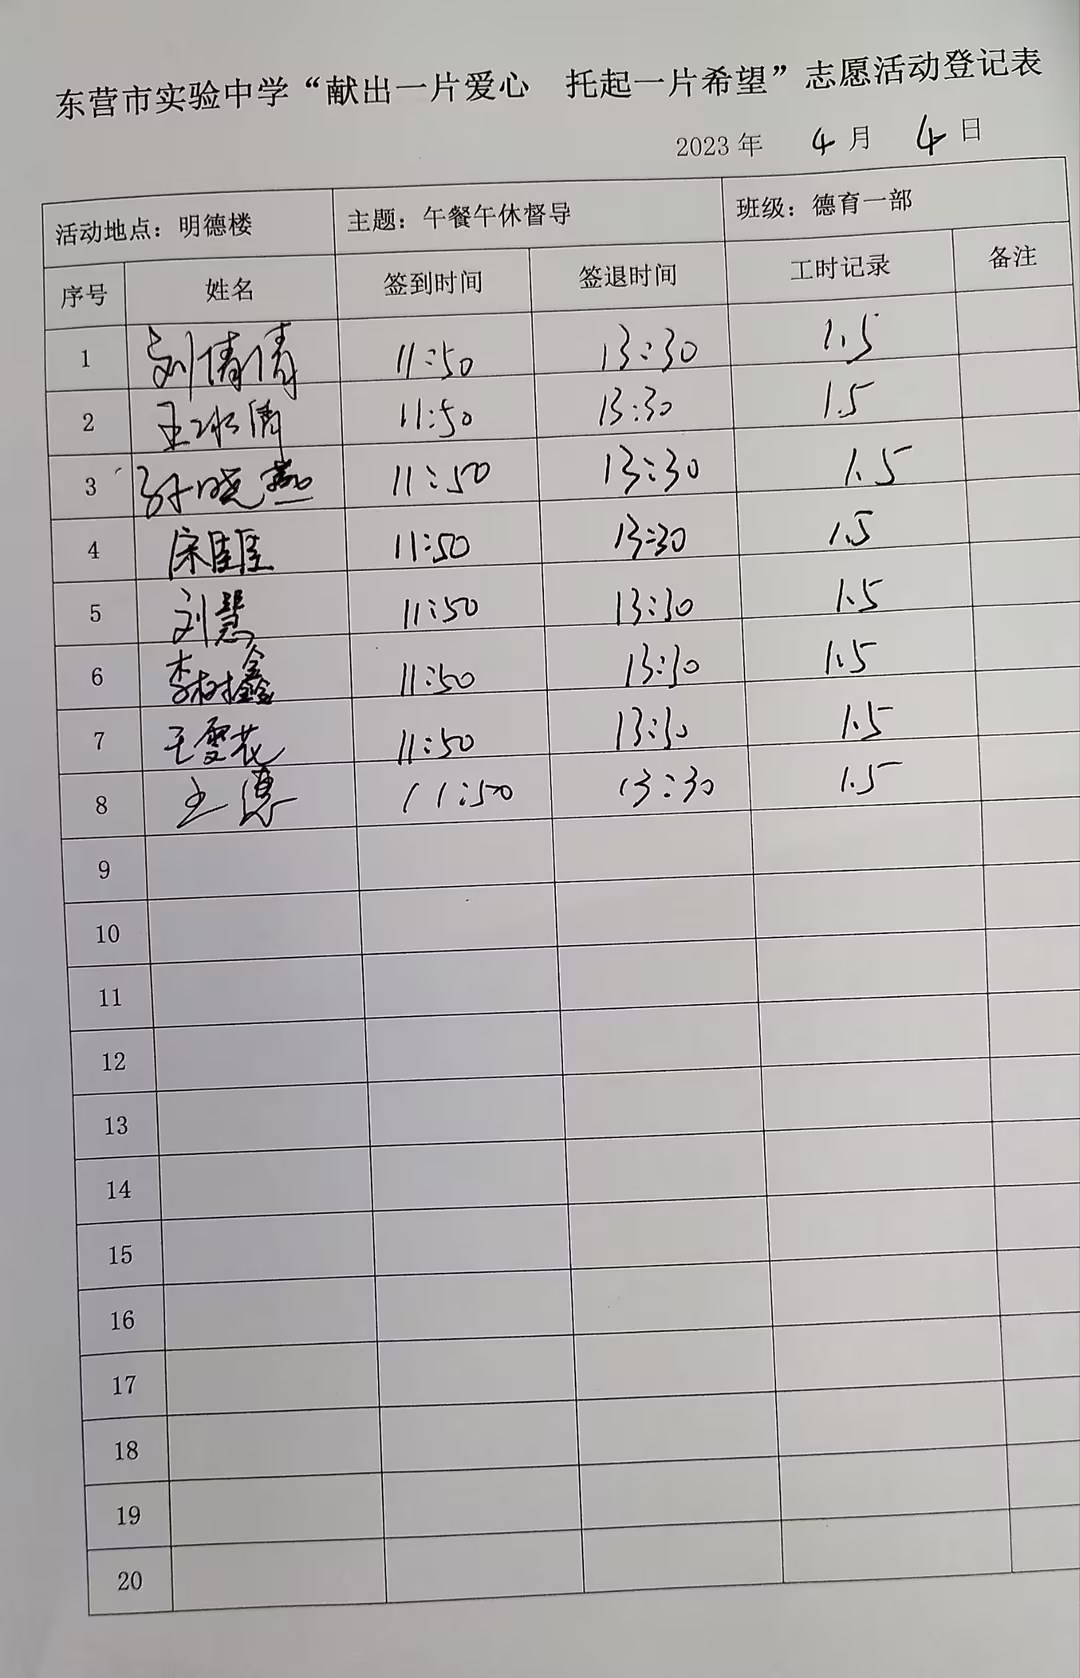 东营市实验中学“献出一片爱心 托起一片希望”志愿活动登记表
2023 年 4 月 4 日
活动地点：明德楼 主题：午餐午休督导 班级：德育一部
序号 姓名 签到时间 签退时间 工时记录 备注
1 刘倩倩 11:50 13:30 1.5
2 王冰倩 11:50 13:30 1.5
3 孙晓燕 11:50 13:30 1.5
4 宋 11:50 13:30 1.5
5 刘慧 11:50 13:30 1.5
6 李树鑫 11:50 13:30 1.5
7 王雪花 11:50 13:30 1.5
8 王 11:50 13:30 1.5
9
10
11
12
13
14
15
16
17
18
19
20